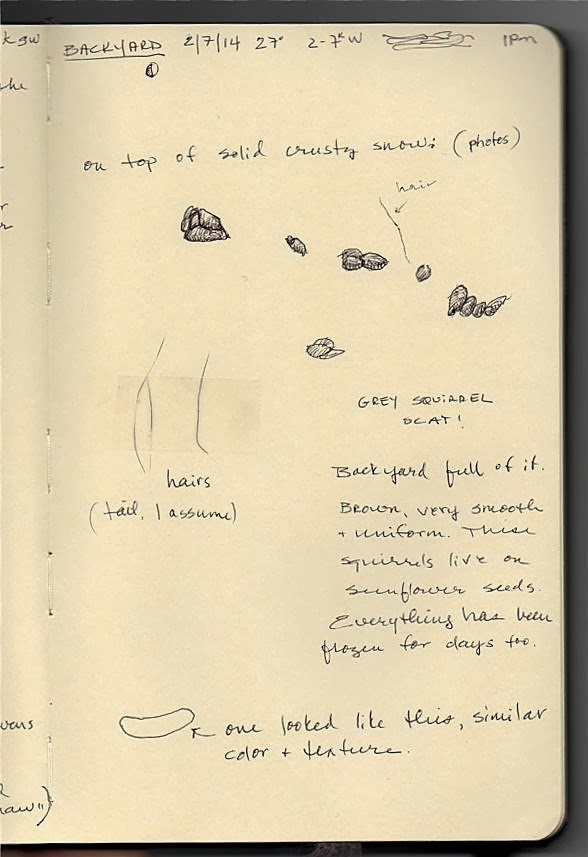 k gw
BACKYARD 2/7/14 27° 2-7k W 1PM
he
on top of solid crusty snow: (photos)
hair
r
GREY SQUIRREL
SCAT!
hairs
(tail, I assume)
Backyard full of it.
Brown, very smooth
+ uniform. These
squirrels live on
sunflower seeds.
Everything has been
frozen for days too.
one looked like this, similar
color + texture.
vens
aw")